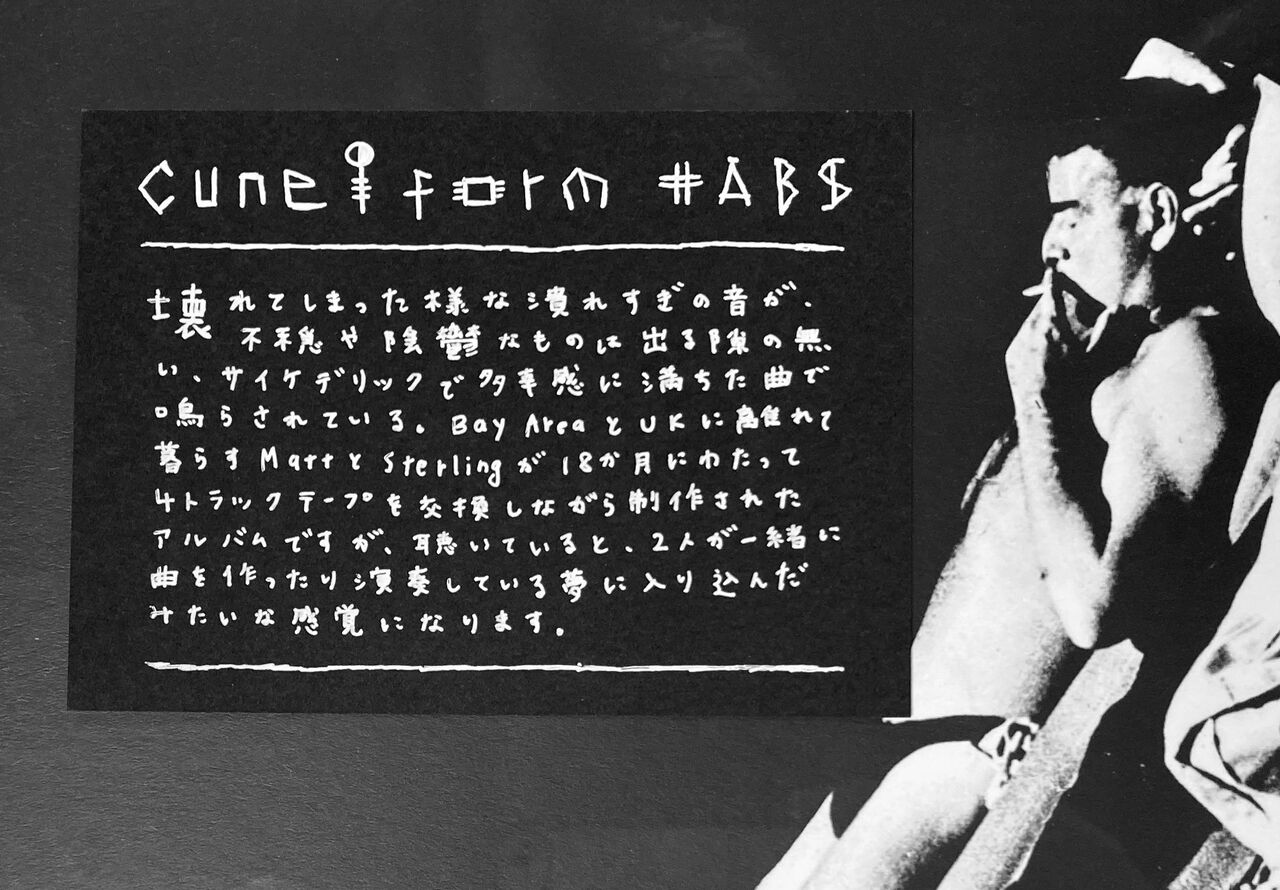 cuneiform #ABS
壊れてしまった様な潰れすぎの音が、
不穏や陰鬱なものには出る隙の無
い、サイケデリックで多幸感に満ちた曲で
鳴らされている。Bay AreaとUKに離れて
暮らすMattとSterlingが18か月にわたって
4トラックテープを交換しながら制作された
アルバムですが、聴いていると、2人が一緒に
曲を作ったり演奏している夢に入り込んだ
みたいな感覚になります。